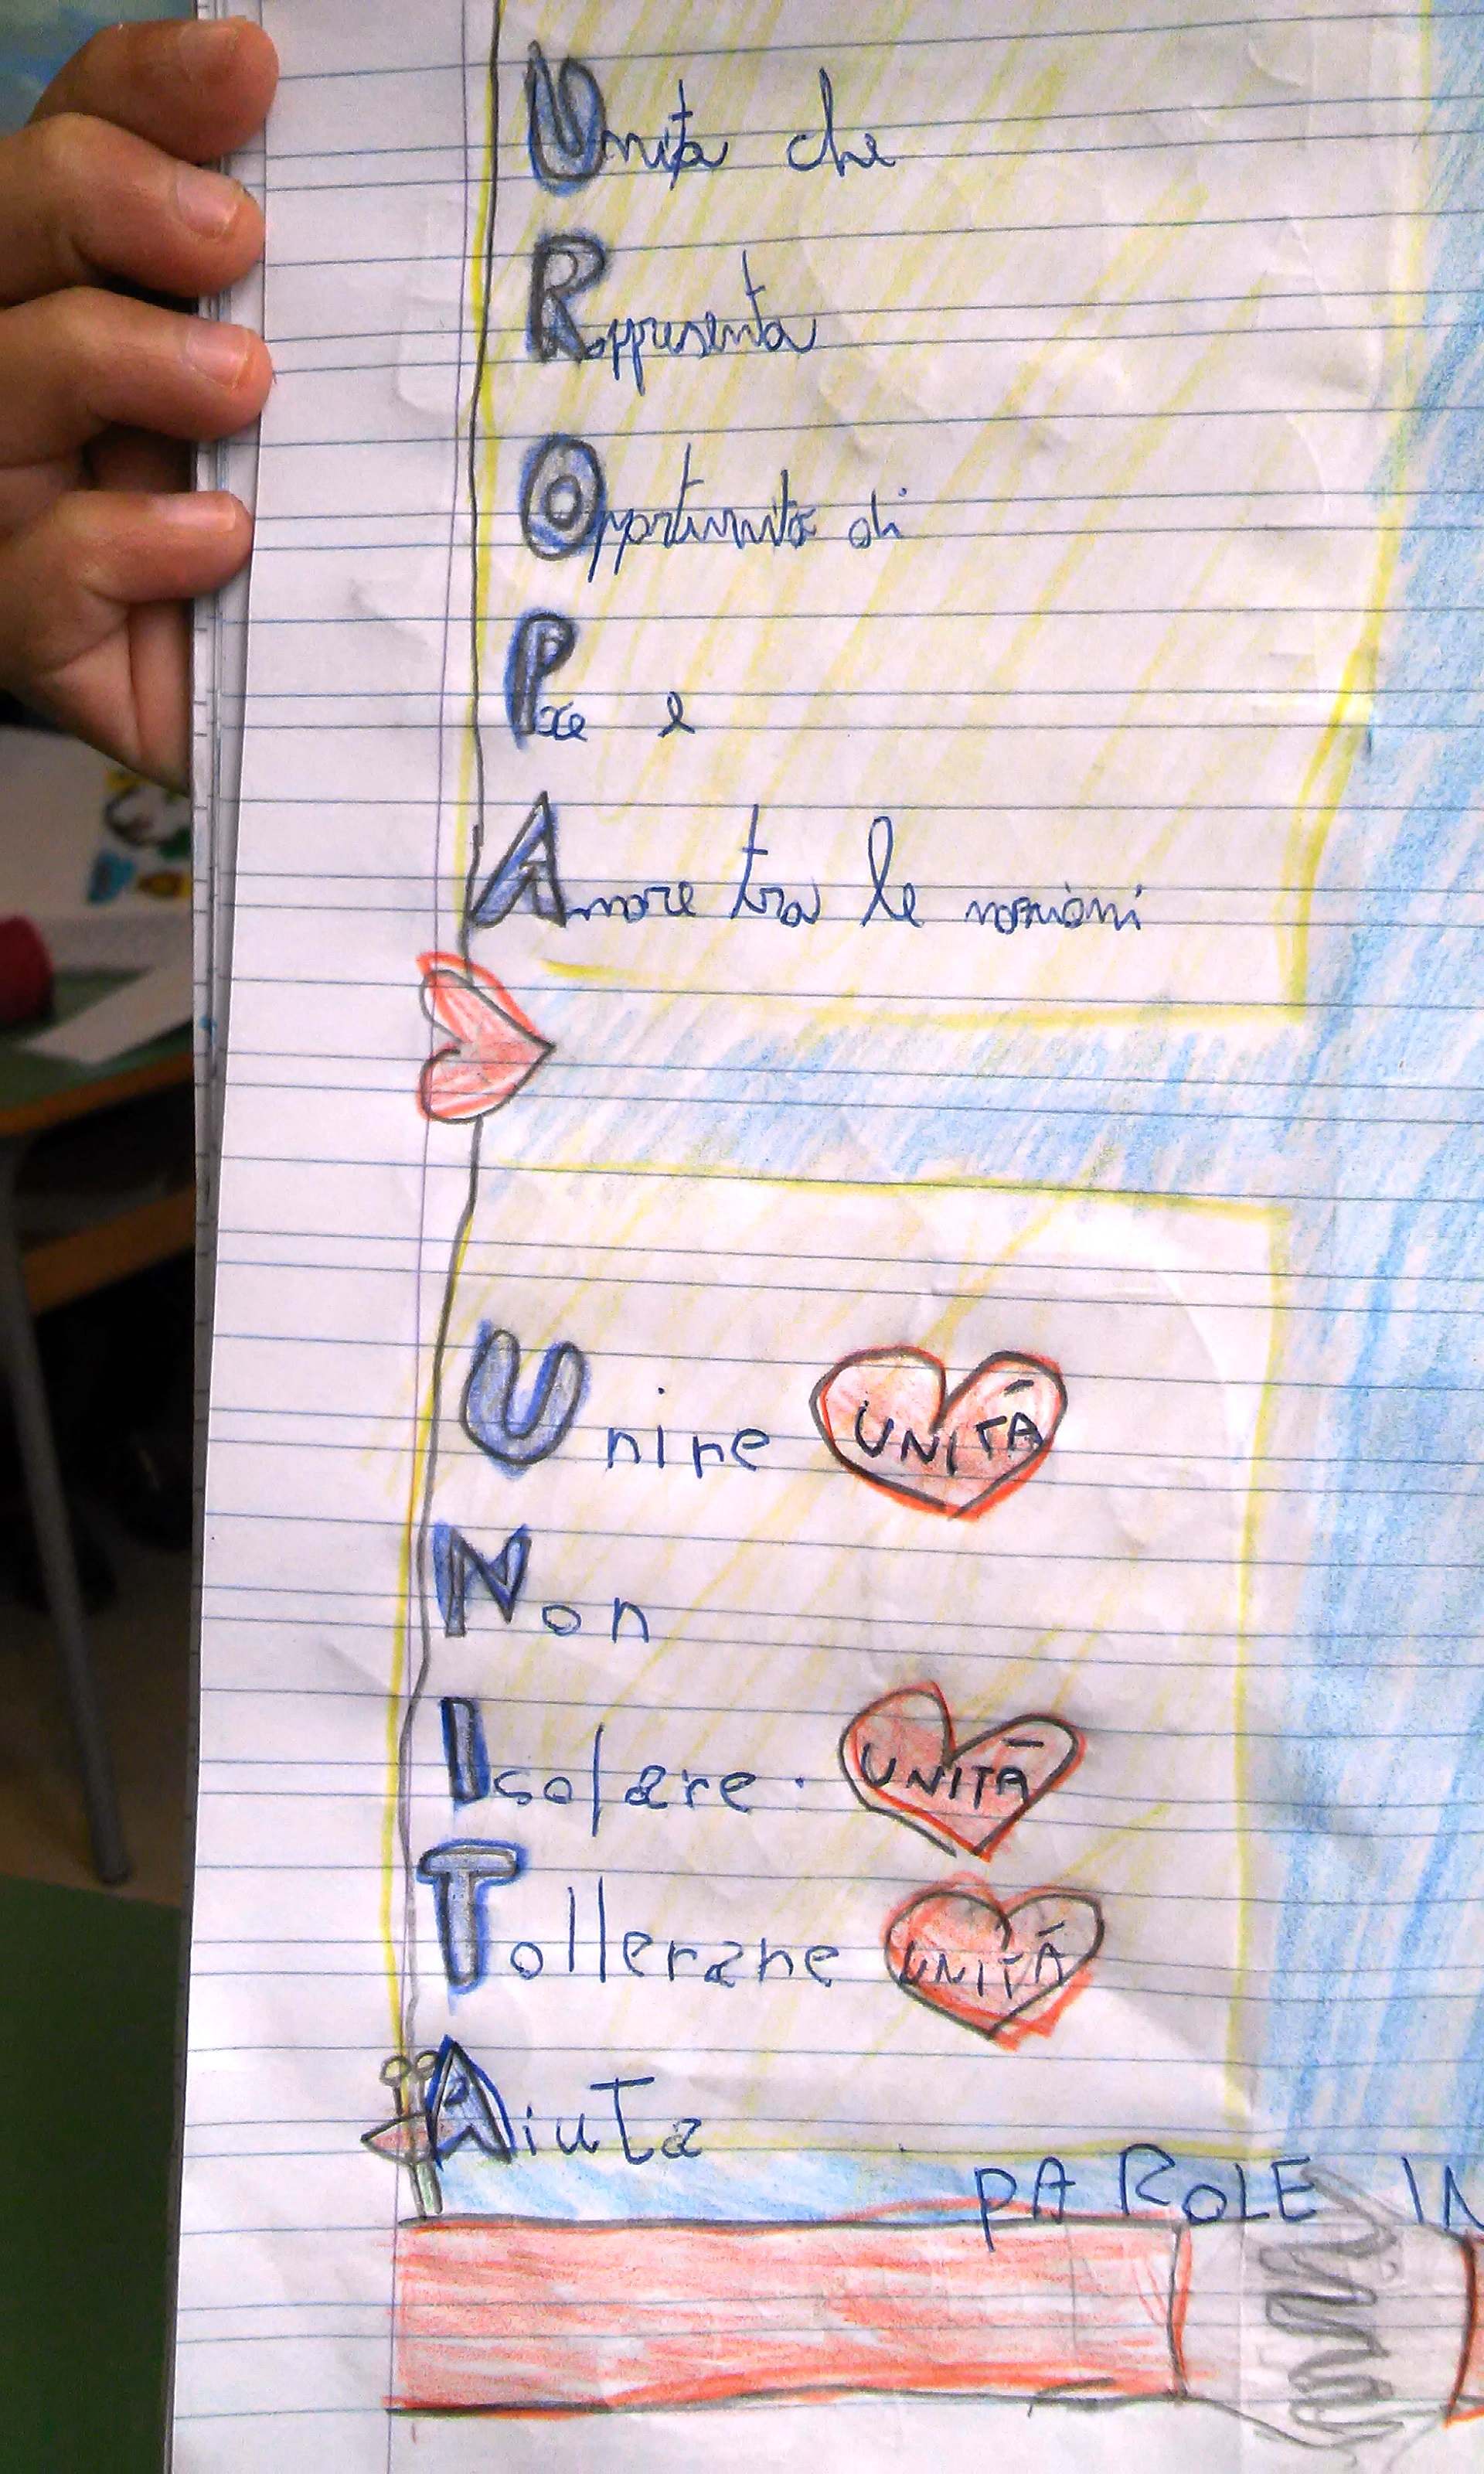 Unita che
Rappresenta
Opportunita di
Pace e
Amore tra le nazioni
Unire UNITÀ
Non
Isolare. UNITÀ
Tollerare UNITÀ
Aiuta
PAROLE IN